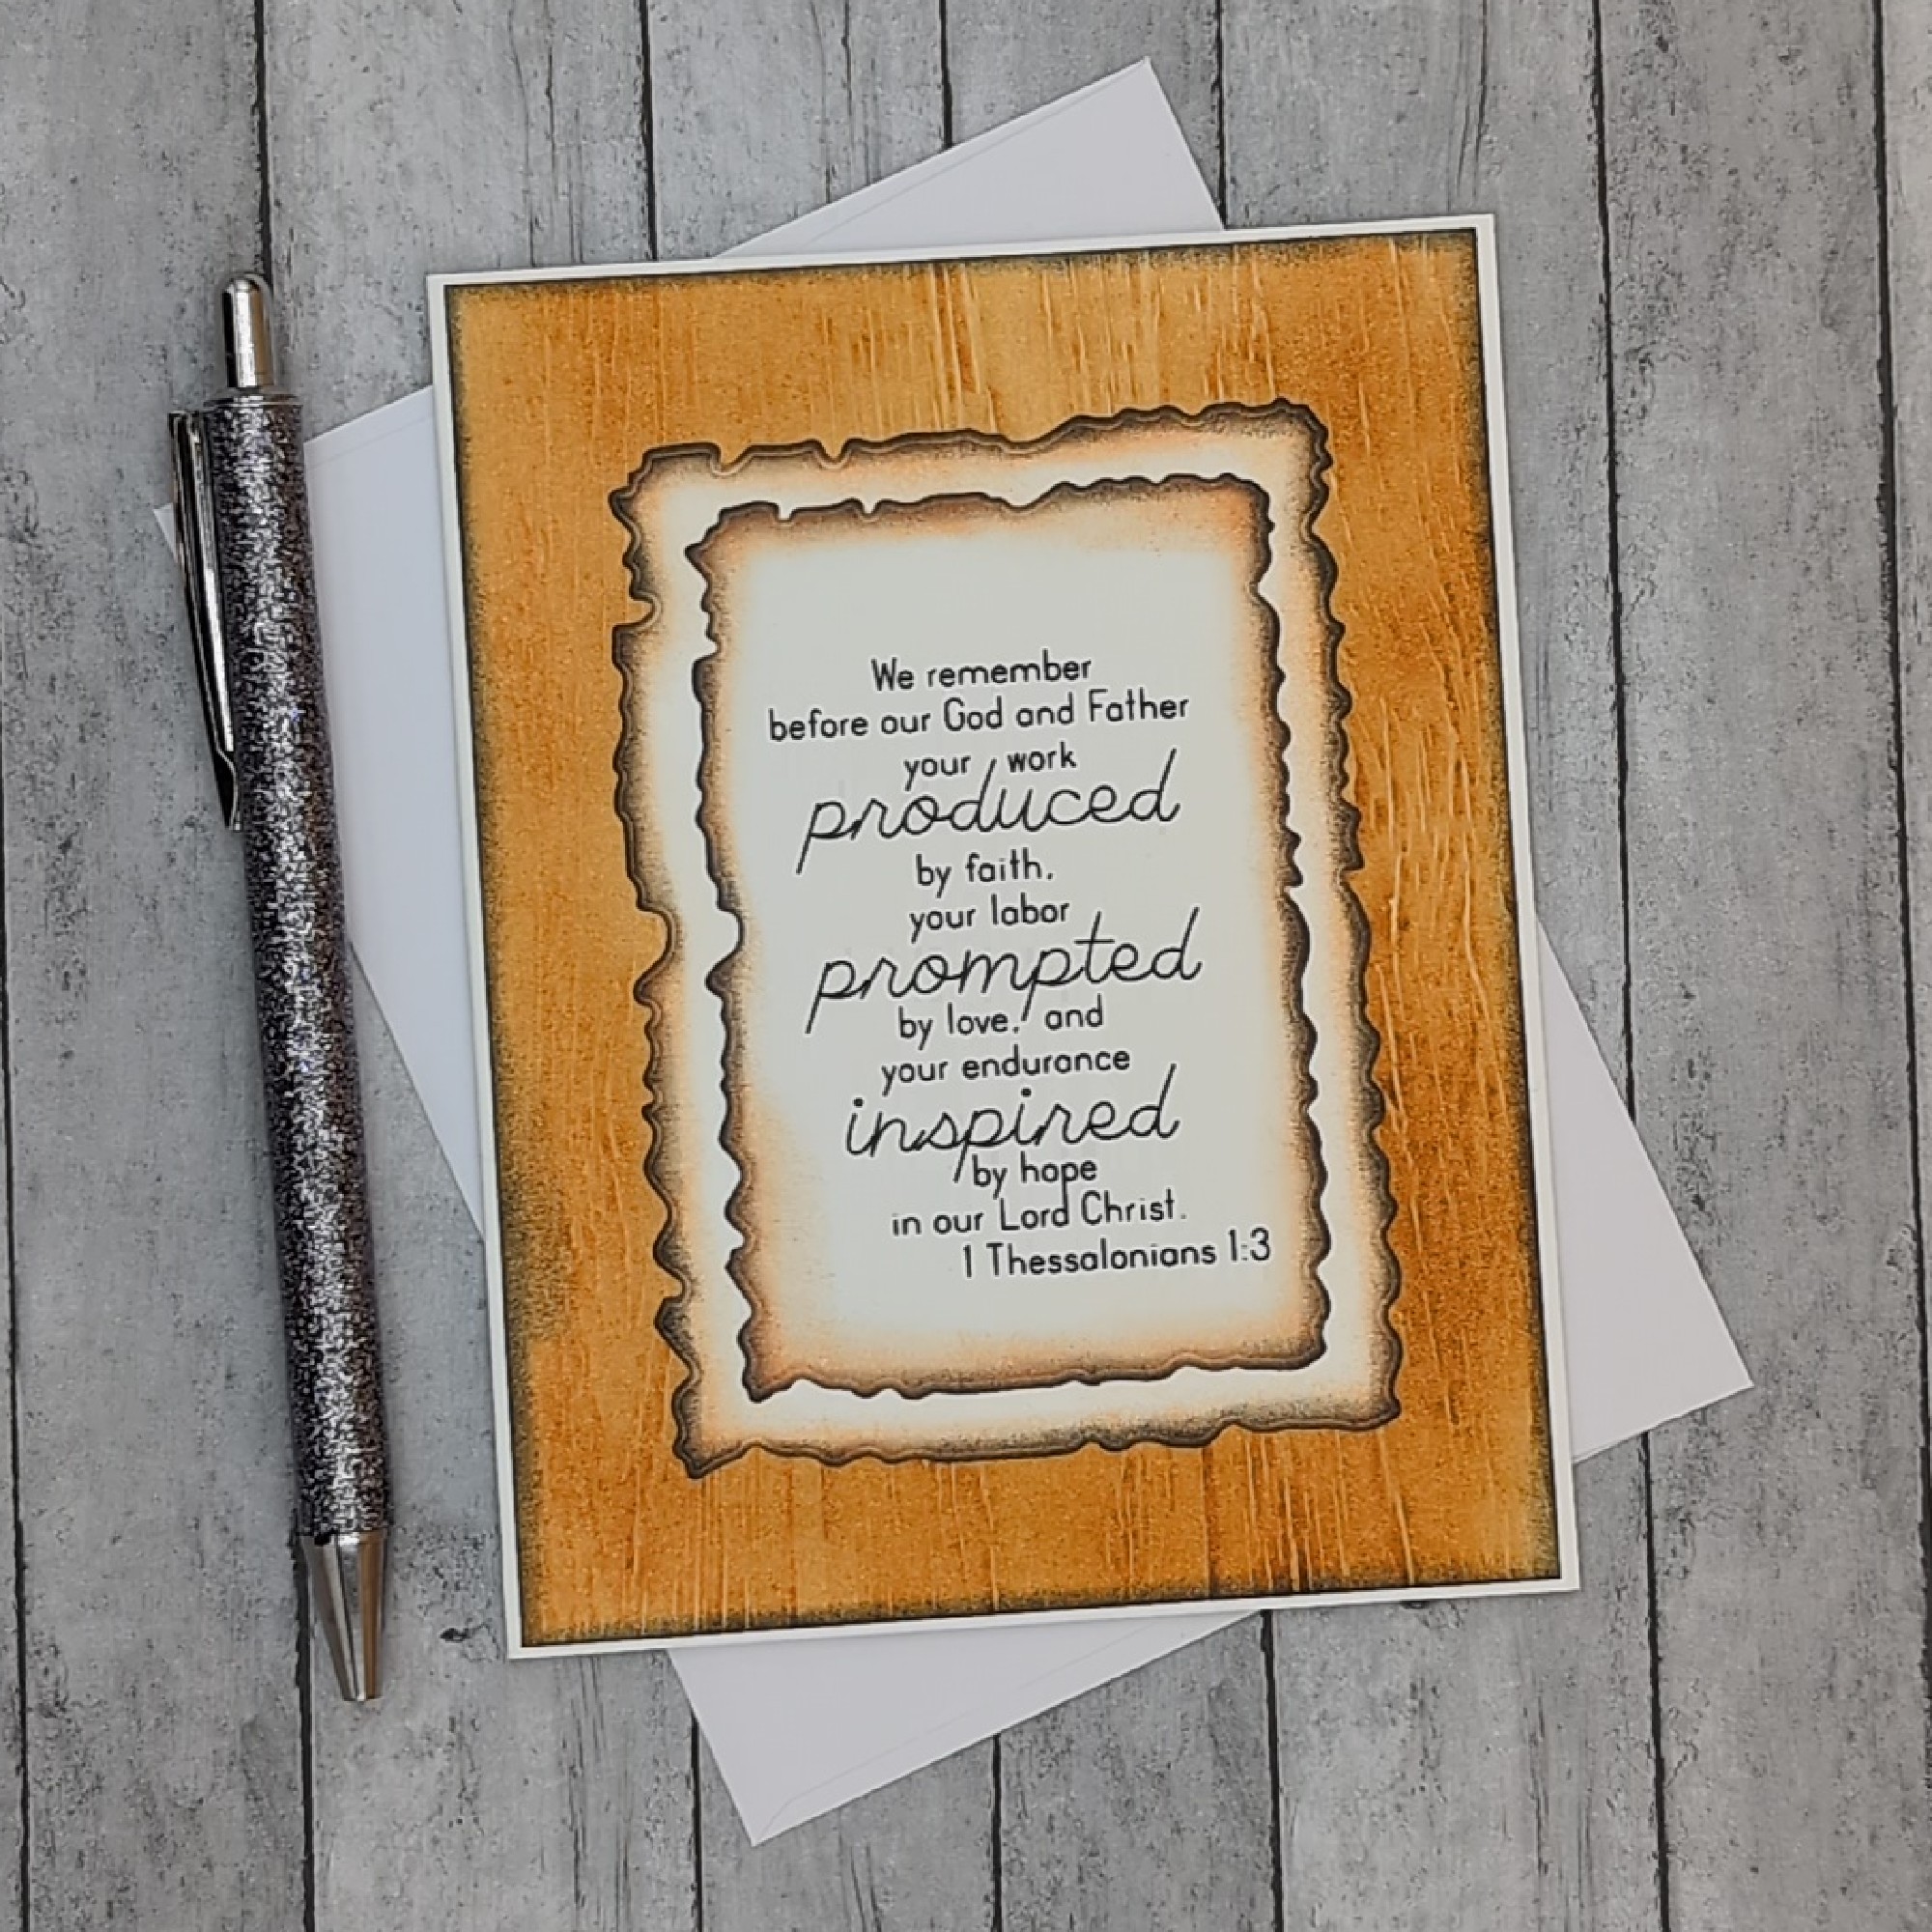 We remember
before our God and Father
your work
produced
by faith,
your labor
prompted
by love, and
your endurance
inspired
by hope
in our Lord Christ.
1 Thessalonians 1:3